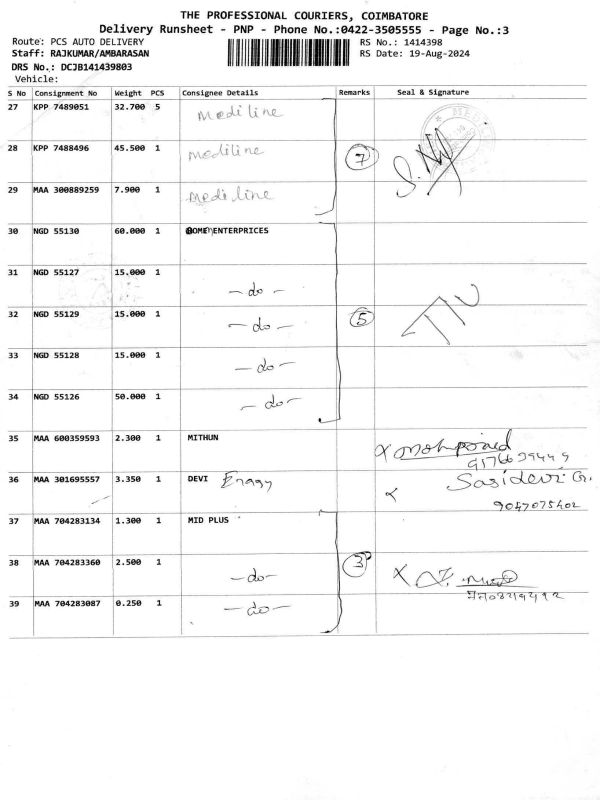 THE PROFESSIONAL COURIERS, COIMBATORE
Delivery Runsheet - PNP - Phone No.:0422-3505555 - Page No.:3
Route: PCS AUTO DELIVERY RS No.: 1414398
Staff: RAJKUMAR/AMBARASAN RS Date: 19-Aug-2024
DRS No.: DCJB141439803
Vehicle:
S No Consignment No Weight PCS Consignee Details Remarks Seal & Signature
27 KPP 7489051 32.700 5 Mediline
28 KPP 7488496 45.500 1 mediline 7
29 MAA 300889259 7.900 1 mediline
30 NGD 55130 60.000 1 ENTERPRICES
31 NGD 55127 15.000 1 -do-
32 NGD 55129 15.000 1 -do- 5
33 NGD 55128 15.000 1 -do-
34 NGD 55126 50.000 1 -do-
35 MAA 600359593 2.300 1 MITHUN
36 MAA 301695557 3.350 1 DEVI Sasidevi G.
9047075402
37 MAA 704283134 1.300 1 MID PLUS
38 MAA 704283360 2.500 1 -do- 3 X
39 MAA 704283087 0.250 1 -do-